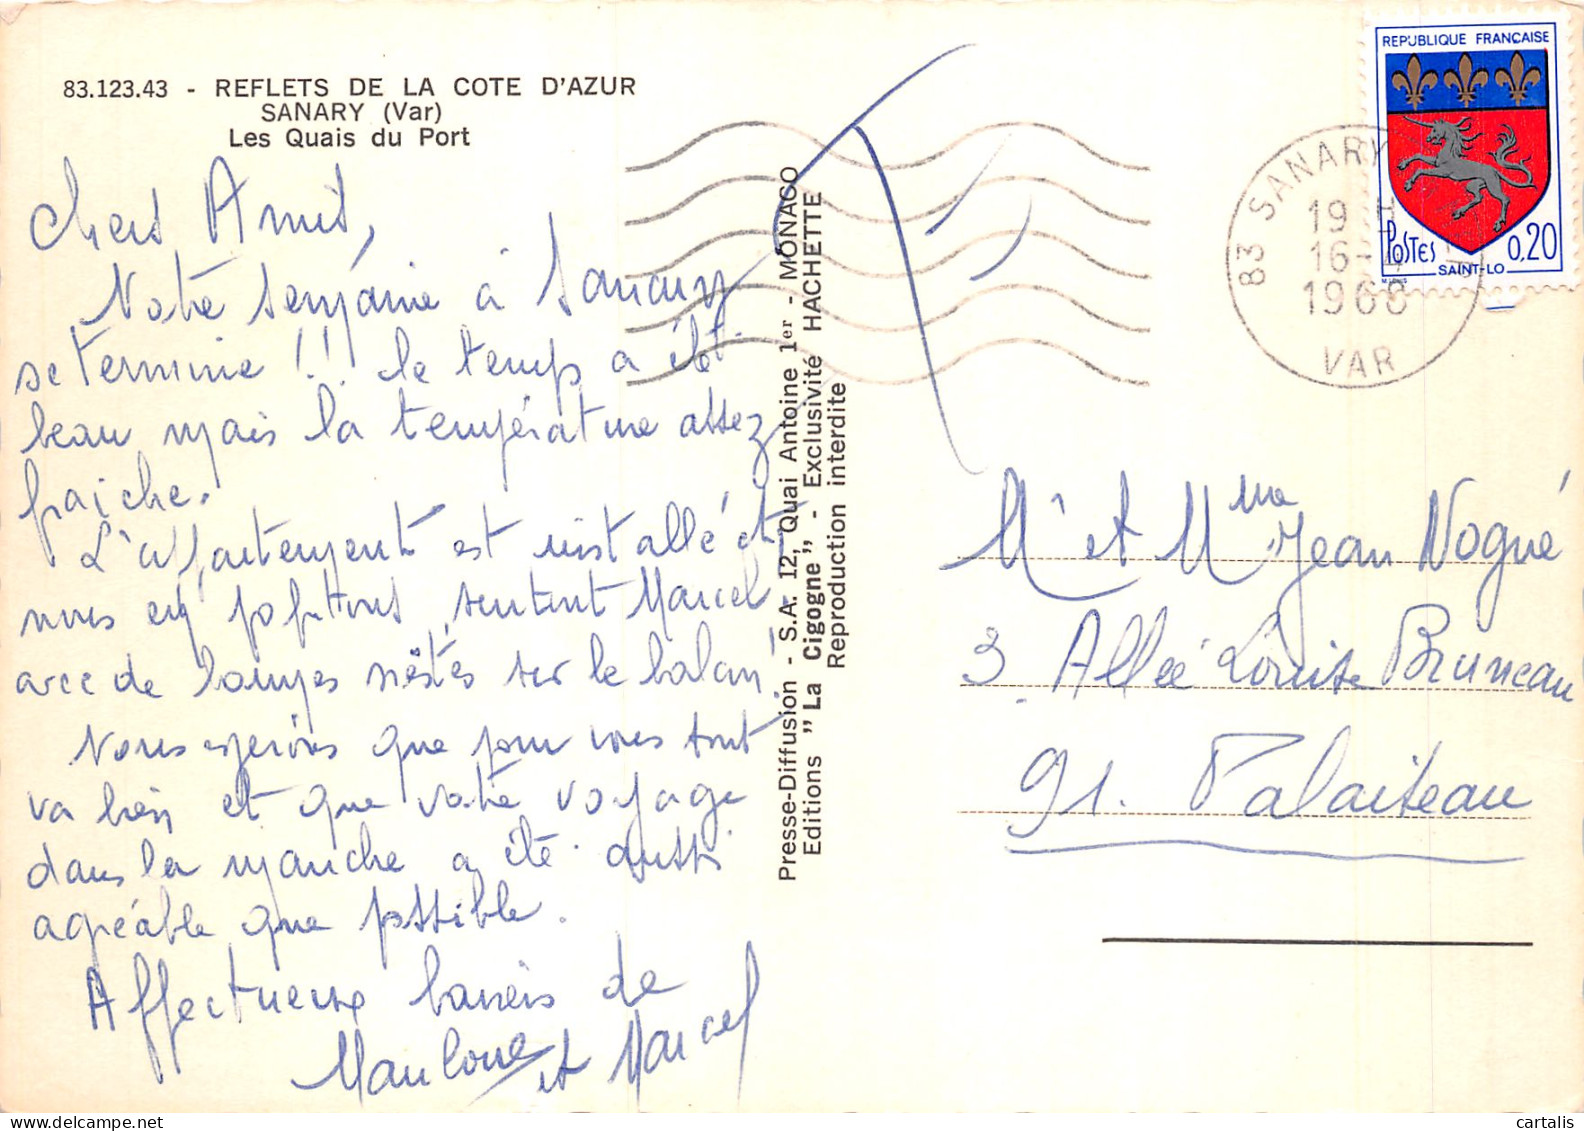 83.123.43 - REFLETS DE LA COTE D'AZUR
SANARY (Var)
Les Quais du Port
Chers Amis,
Notre semaine à Sanary
se termine !!! le temps a été
beau mais la température assez
fraiche.
L'appartement est installé et
nous en profitons, surtout Marcel
avec de longues siestes sur le balcon
Nous espérons que pour vous tout
va bien et que votre voyage
dans la manche a été aussi
agréable que possible.
Affectueux baisers de
et Marcel
Presse-Diffusion - S.A. 12, Quai Antoine 1er - MONACO
Editions "La Cigogne" - Exclusivité HACHETTE
Reproduction interdite
REPUBLIQUE FRANÇAISE
POSTES 0,20
SAINT-LO
83 SANARY
19 H
16 -
1968
VAR
Mr et Mme Jean Nogué
3 Allée Louise Bruneau
91. Palaiseau
cartalis